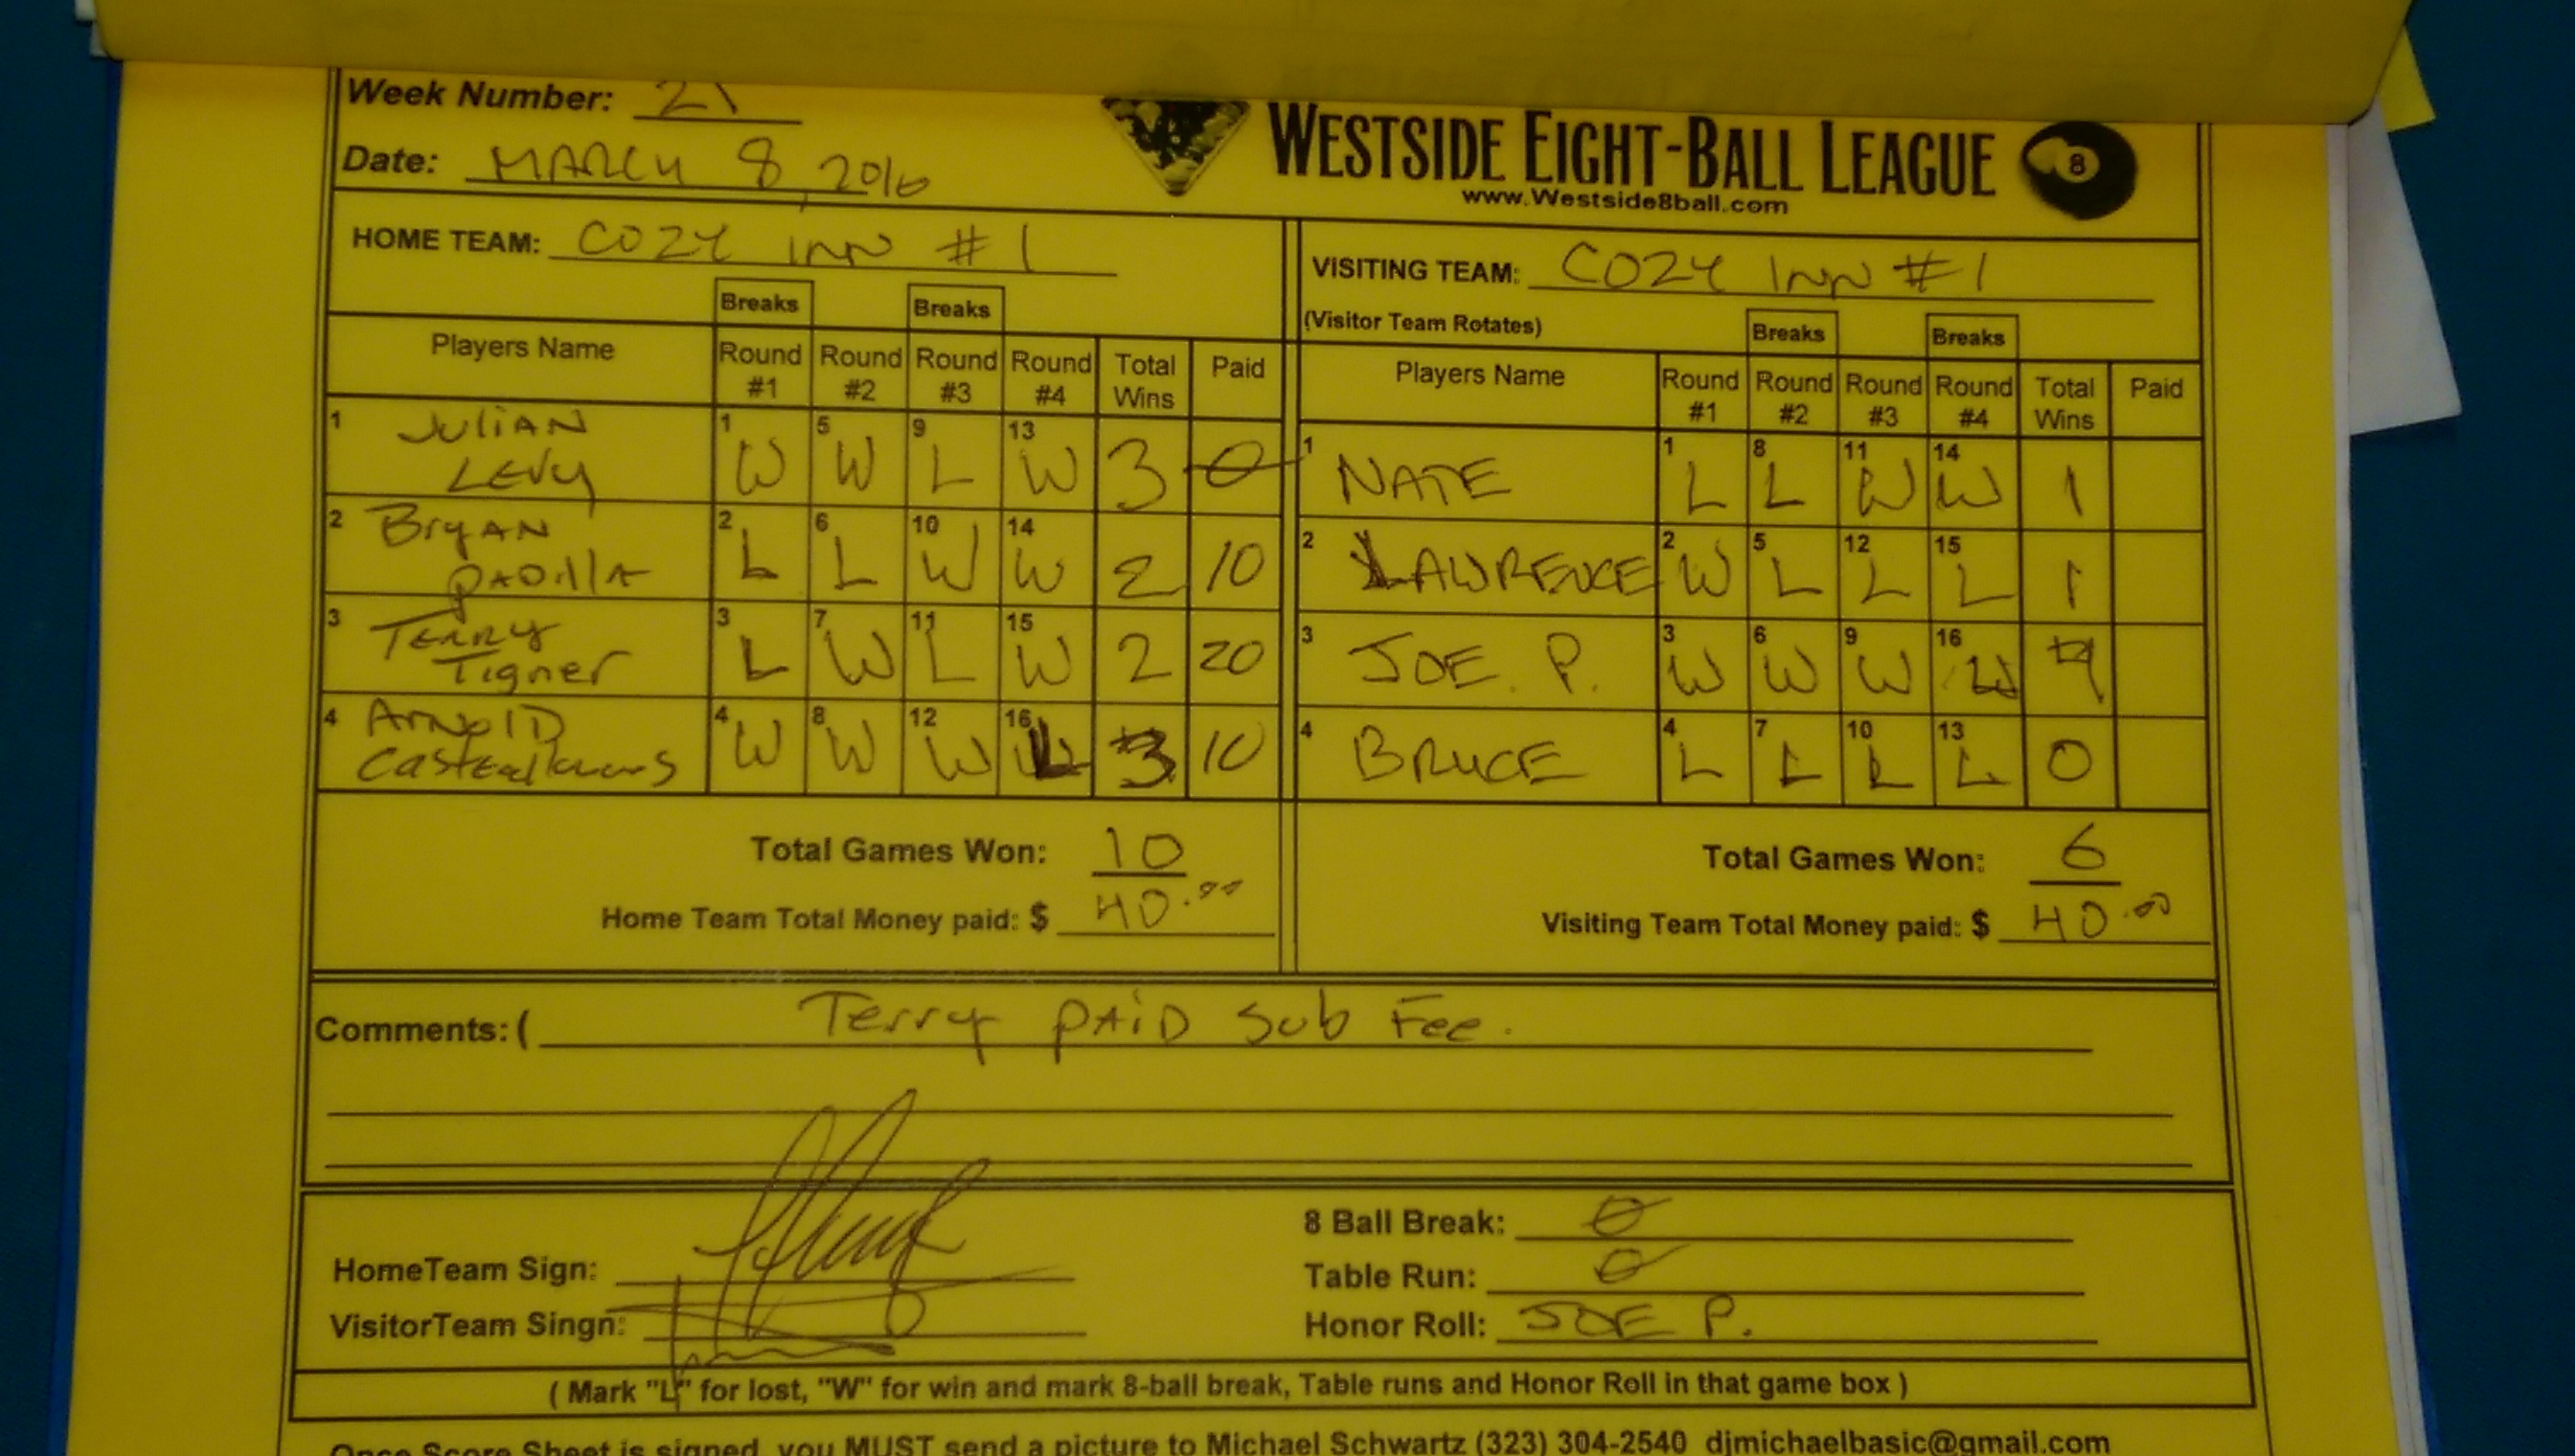 Week Number: 21
Date: MARCH 8, 2016
WESTSIDE EIGHT-BALL LEAGUE
www.Westside8ball.com
8
HOME TEAM: COZY INN #1
VISITING TEAM: COZY INN #1
(Visitor Team Rotates)
Breaks Breaks
Breaks Breaks
Players Name Round #1 Round #2 Round #3 Round #4 Total Wins Paid
1 JULIAN LEVY 1 W 5 W 9 L 13 W 3 0
2 BryAN PADillA 2 L 6 L 10 W 14 W 2 10
3 TERRY Tigner 3 L 7 W 11 L 15 W 2 20
4 ArnolD 4 W 8 W 12 W 16 L 3 10
Total Games Won: 10
Home Team Total Money paid: $ 40.00
Players Name Round #1 Round #2 Round #3 Round #4 Total Wins Paid
1 NATE 1 L 8 L 11 W 14 W 1
2 LAWRENCE 2 W 5 L 12 L 15 L 1
3 JOE. P. 3 W 6 W 9 W 16 W 4
4 BRUCE 4 L 7 L 10 L 13 L 0
Total Games Won: 6
Visiting Team Total Money paid: $ 40.00
Comments: ( Terry PAiD Sub Fee.
HomeTeam Sign:
VisitorTeam Singn:
8 Ball Break: 0
Table Run: 0
Honor Roll: JOE P.
( Mark "L" for lost, "W" for win and mark 8-ball break, Table runs and Honor Roll in that game box )
Once Score Sheet is signed, you MUST send a picture to Michael Schwartz (323) 304-2540 djmichaelbasic@gmail.com